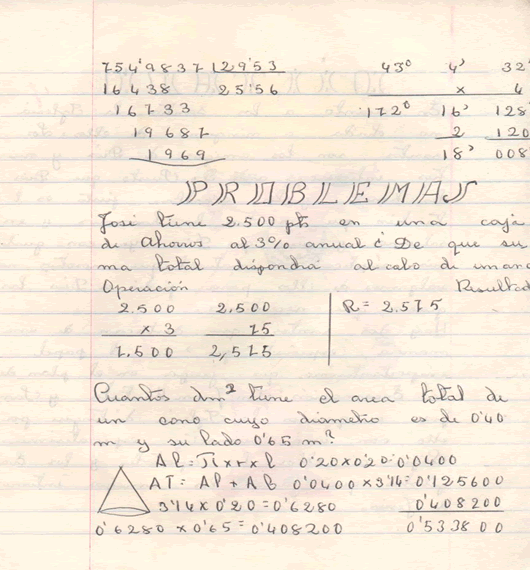 754'9837 |29'53 43º 4' 32
16 438 25'56 x 4
16733 172º 16' 128
19687 2 120
1969 18' 008
PROBLEMAS
José tiene 2.500 pts en una caja
de Ahorros al 3% anual ¿ De que su
ma total dispondrá al cabo de un
Operación Resultad
2.500 2,500 R = 2.575
x 3 75
7,500 2,575
Cuantos dm² tiene el area total de
un cono cuyo diametro es de 0'40
m y su lado 0'65 m?
Al = π x r x l 0'20x0'20=0'0400
AT = Al + AB 0'0400 x 3'14= 0'125600
3'14 x 0'20 = 0'6280 0'408200
0'6280 x 0'65 = 0'408200 0'533800